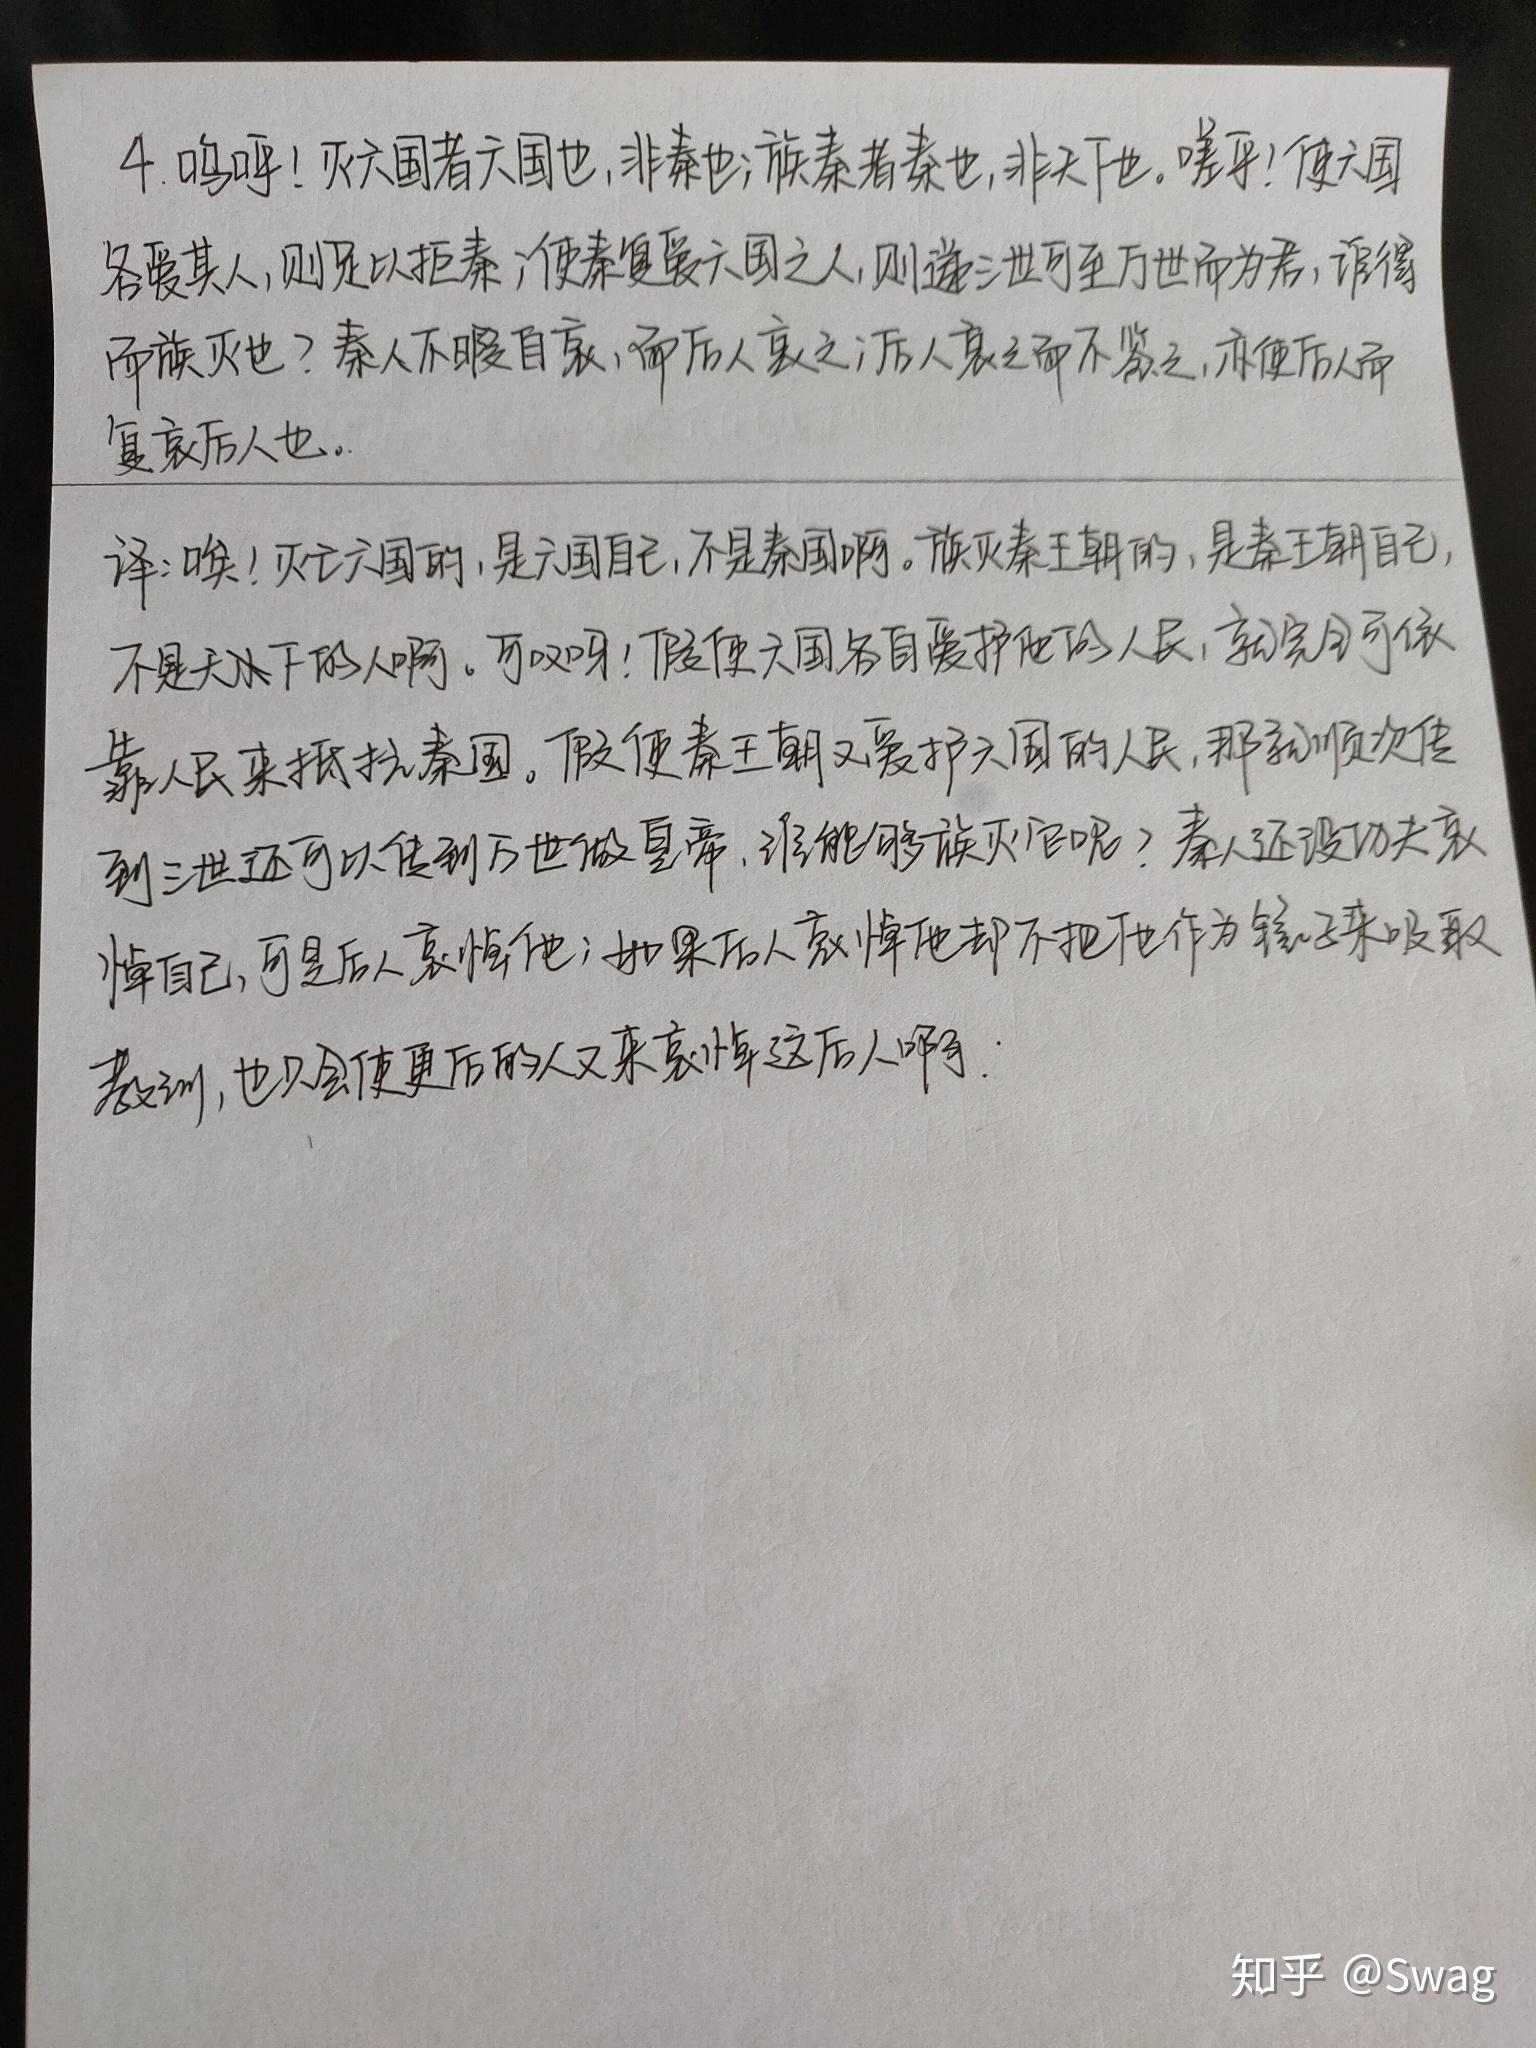 4.呜呼！灭六国者六国也，非秦也；族秦者秦也，非天下也。嗟乎！使六国
各爱其人，则足以拒秦；使秦复爱六国之人，则递三世可至万世而为君，谁得
而族灭也？秦人不暇自哀，而后人哀之；后人哀之而不鉴之，亦使后人而
复哀后人也。
译：唉！灭亡六国的，是六国自己，不是秦国啊。族灭秦王朝的，是秦王朝自己，
不是天下的人啊。可叹呀！假使六国各自爱护他的人民，就完全可依
靠人民来抵抗秦国。假使秦王朝又爱护六国的人民，那就顺次传
到三世还可以传到万世做皇帝，谁能够族灭它呢？秦人还没功夫哀
悼自己，可是后人哀悼他；如果后人哀悼他却不把他作为镜子来吸取
教训，也只会使更后的人又来哀悼这后人啊.
知乎 @Swag